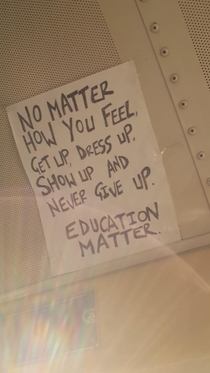 NO MATTER
HOW YOU FEEL,
GET UP, DRESS UP,
SHOW UP AND
NEVER GIVE UP.
EDUCATION
MATTER.